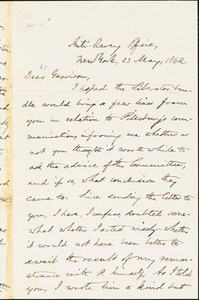 Anti-Slavery Office,
New York, 23 May, 1862.
Dear Garrison,
I hoped the Liberator bun-
dle would bring a few lines from
you in relation to Pillsbury's com-
munication, informing me whether or
not you thought it worth while to
ask the advice of the Committee,
and if so, what conclusion they
came to. Since sending the letter to
you, I have, I confess, doubted some-
what whether I acted wisely—whether
it would not have been better to
await the result of my remon-
strance with P. himself. As I told
you, I wrote him a kind but